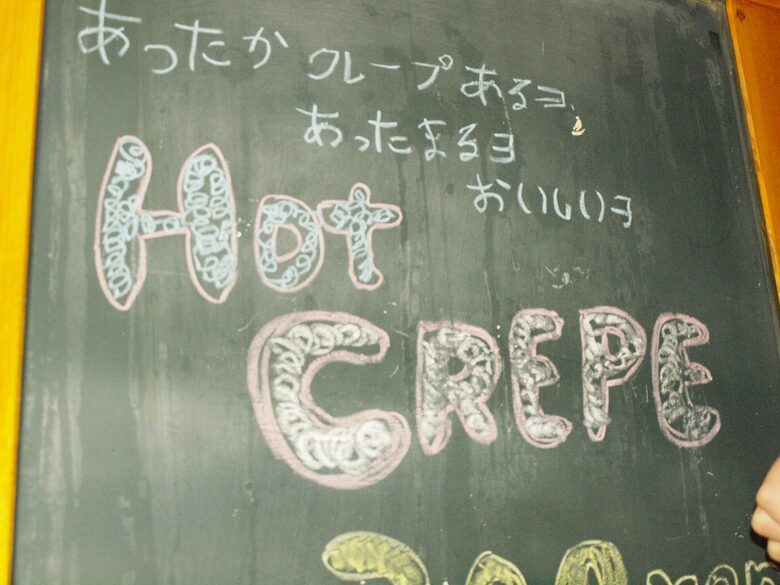 あったか クレープ あるヨ
あったまるヨ
おいしいヨ
HOt
CREPE